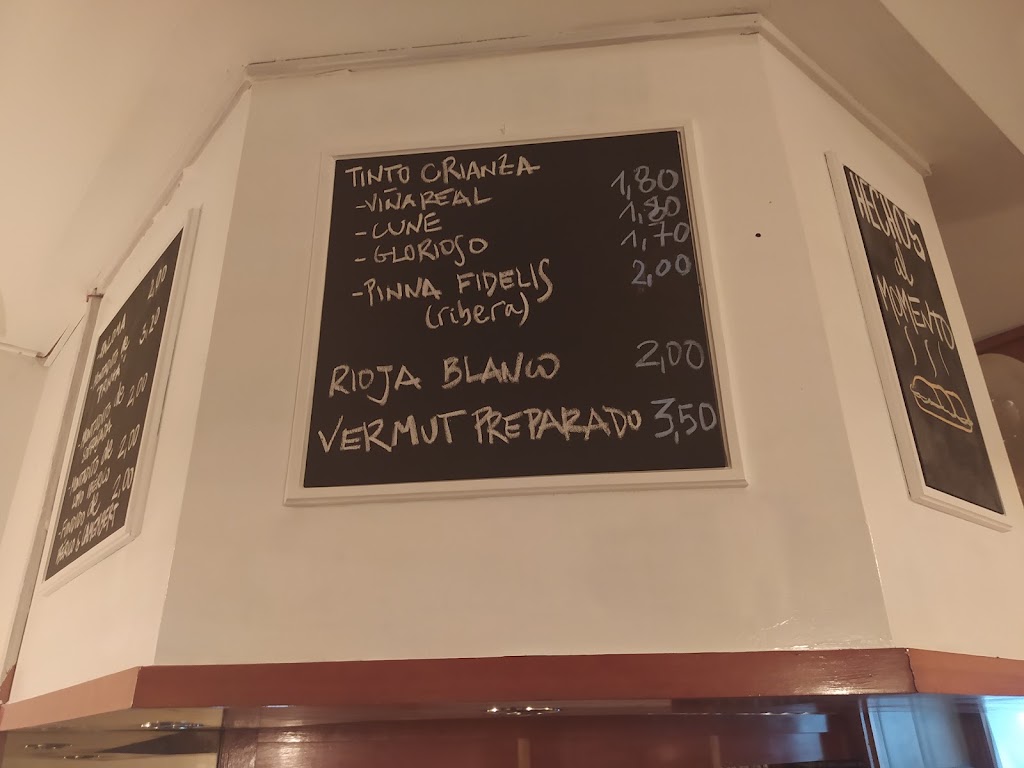 TINTO CRIANZA
-VIÑA REAL 1,80
-CUNE 1,80
-GLORIOSO 1,70
-PINNA FIDELIS 2,00
(ribera)
RIOJA BLANCO 2,00
VERMUT PREPARADO 3,50
HECHOS
al
MOMENTO
2,00
5,20
de 2,00
2,00
2,00